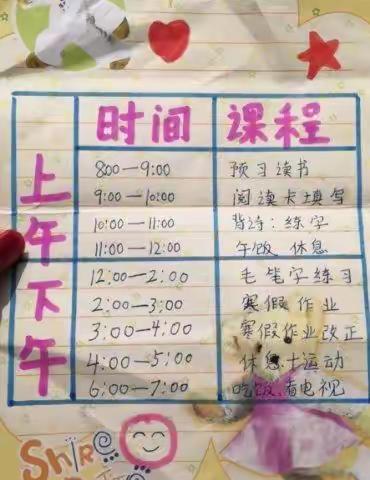 时间 课程
上午
8:00—9:00 预习读书
9:00—10:00 阅读卡填写
10:00—11:00 背诗:练字
11:00—12:00 午饭 休息
下午
12:00—2:00 毛笔字练习
2:00—3:00 寒假作业
3:00—4:00 寒假作业改正
4:00—5:00 休息十运动
6:00—7:00 吃饭.看电视